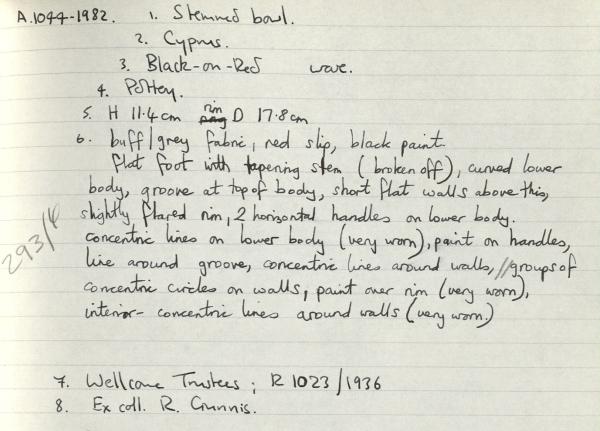 A.1044-1982. 1. Stemmed bowl.
2. Cyprus.
3. Black-on-Red ware.
4. Pottery.
5. H 11.4cm rim D 17.8cm
6. buff/grey fabric, red slip, black paint.
flat foot with tapering stem (broken off), curved lower
body, groove at top of body, short flat walls above this,
slightly flared rim, 2 horizontal handles on lower body.
concentric lines on lower body (very worn), paint on handles,
line around groove, concentric lines around walls, // groups of
concentric circles on walls, paint over rim (very worn),
interior - concentric lines around walls (very worn.)
293/4
7. Wellcome Trustees; R 1023/1936
8. Ex coll. R. Gunnis.